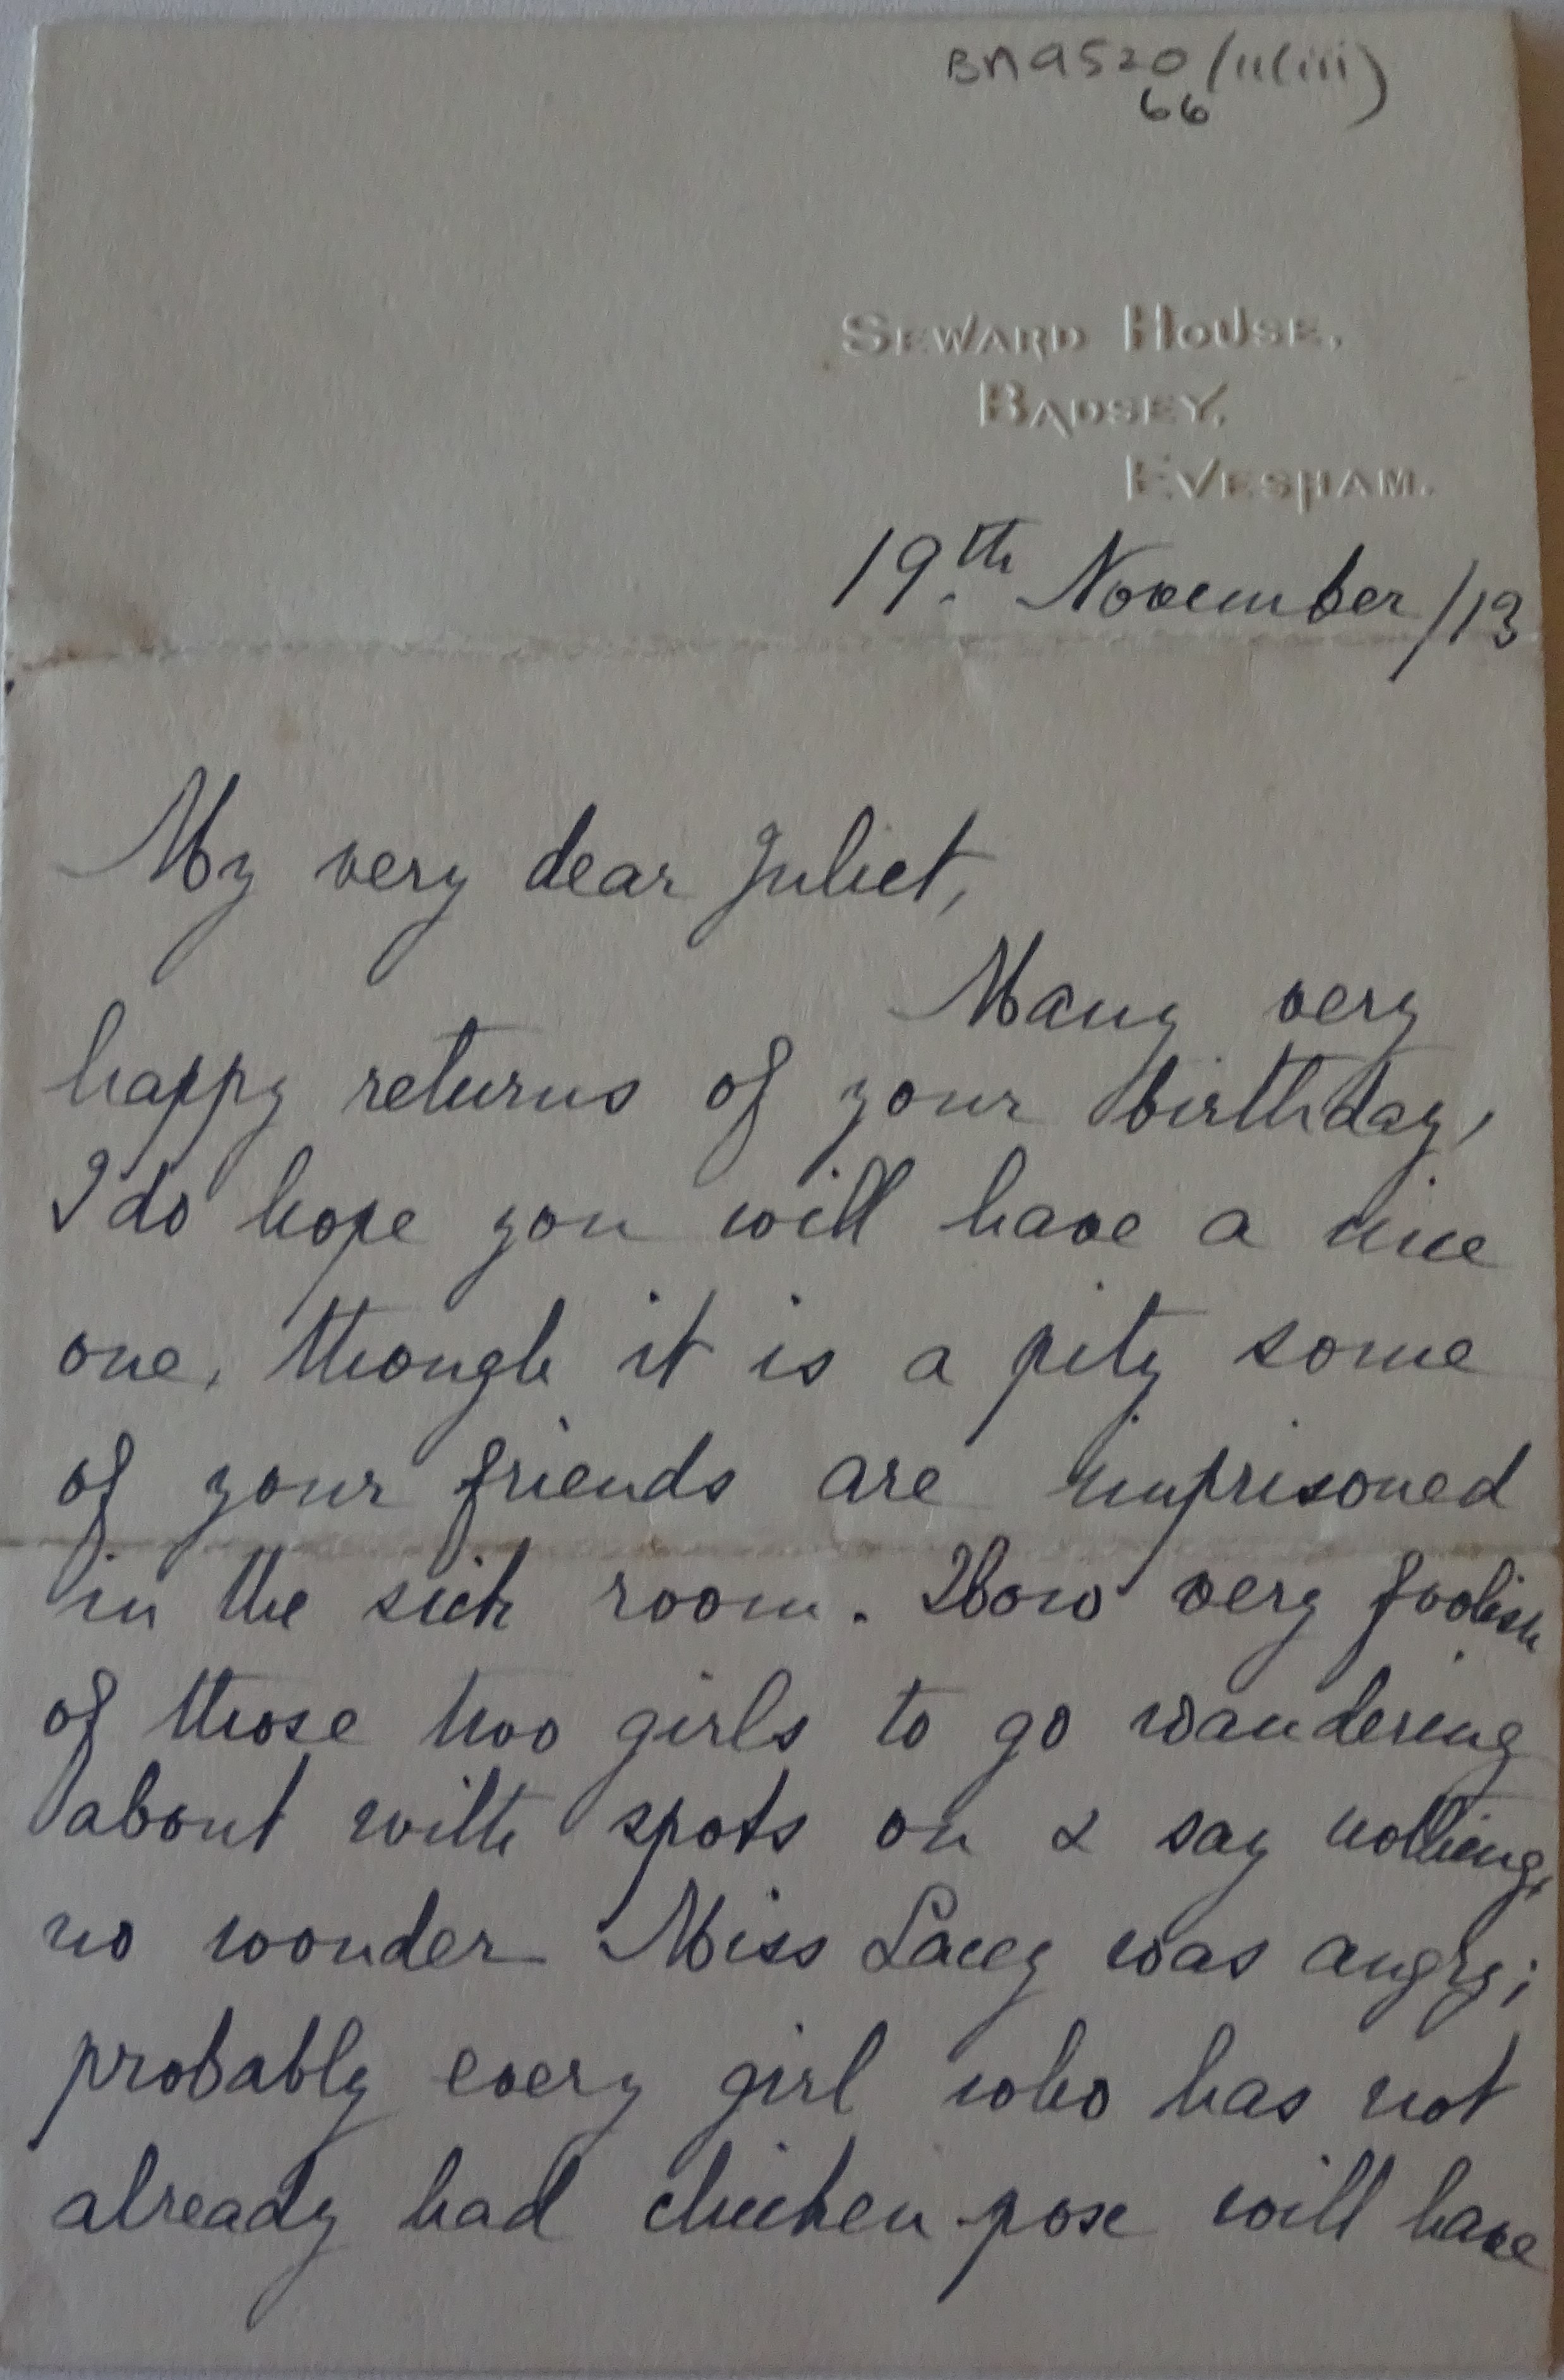 BA9520/11(iii)
66
SEWARD HOUSE,
BADSEY,
EVESHAM.
19th November/13
My very dear Juliet,
Many very
happy returns of your birthday,
I do hope you will have a nice
one, though it is a pity some
of your friends are imprisoned
in the sick room. How very foolish
of those two girls to go wandering
about with spots on & say nothing,
no wonder Miss Lacey was angry;
probably every girl who has not
already had chicken-pox will have